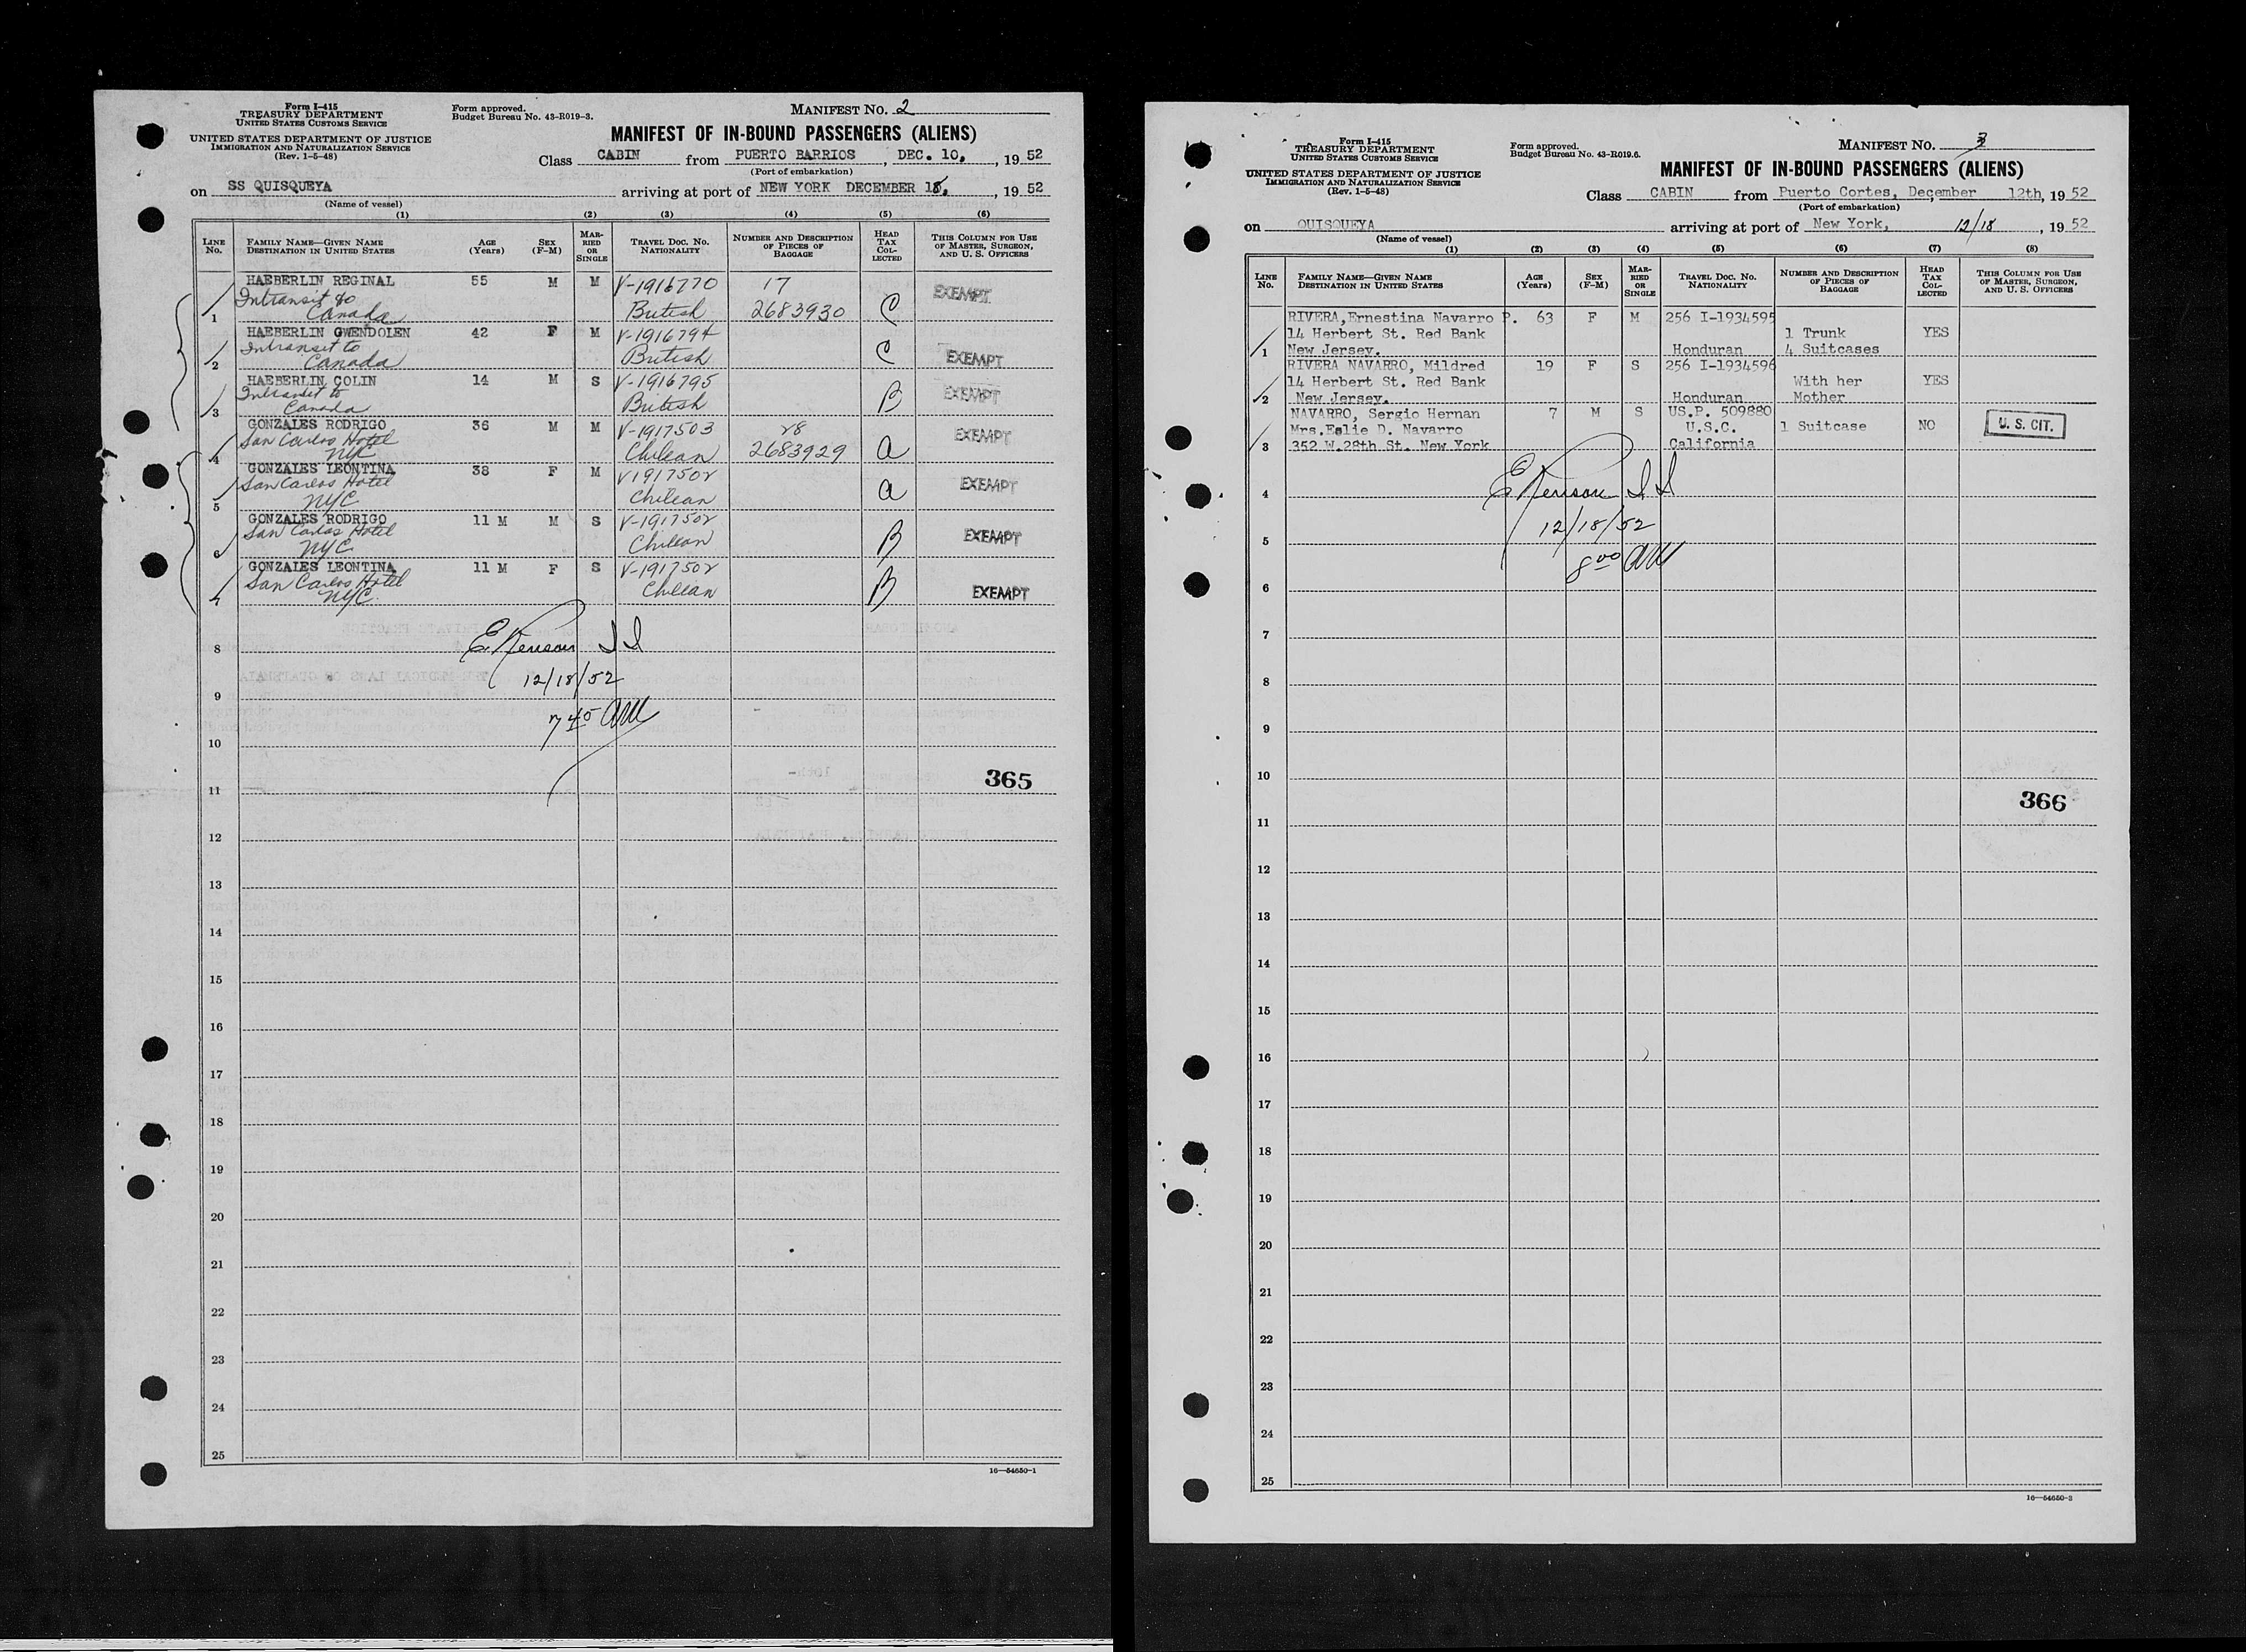 Form I-415
TREASURY DEPARTMENT
UNITED STATES CUSTOMS SERVICE
UNITED STATES DEPARTMENT OF JUSTICE
IMMIGRATION AND NATURALIZATION SERVICE
(Rev. 1-5-48)
Form approved.
Budget Bureau No. 43-R019-3.
MANIFEST NO. 2
MANIFEST OF IN-BOUND PASSENGERS (ALIENS)
Class CABIN from PUERTO BARRIOS, DEC. 10, 1952
(Port of embarkation)
on SS QUISQUEYA arriving at port of NEW YORK DECEMBER 18, 1952
(Name of vessel)
(1) (2) (3) (4) (5) (6)
LINE No. FAMILY NAME—GIVEN NAME DESTINATION IN UNITED STATES AGE (Years) SEX (F-M) MARRIED OR SINGLE TRAVEL DOC. NO. NATIONALITY NUMBER AND DESCRIPTION OF PIECES OF BAGGAGE HEAD TAX COLLECTED THIS COLUMN FOR USE OF MASTER, SURGEON, AND U. S. OFFICERS
HAEBERLIN REGINAL 55 M M V-1916770 17
Intransit to
1 Canada British 2683930 C EXEMPT
HAEBERLIN GWENDOLEN 42 F M V-1916794
Intransit to
2 Canada British C EXEMPT
HAEBERLIN COLIN 14 M S V-1916795
Intransit to
3 Canada British B EXEMPT
GONZALES RODRIGO 36 M M V-1917503 28
San Carlos Hotel
4 NYC Chilean 2683929 a EXEMPT
GONZALES LEONTINA 38 F M V1917502
San Carlos Hotel
5 NYC Chilean a EXEMPT
GONZALES RODRIGO 11 M M S V-1917502
San Carlos Hotel
6 NYC Chilean B EXEMPT
GONZALES LEONTINA 11 M F S V-1917502
San Carlos Hotel
7 NYC. Chilean B EXEMPT
8
12/18/52
9
7 45 AM
10
365
11
12
13
14
15
16
17
18
19
20
21
22
23
24
25
16—54650-1
Form I-415
TREASURY DEPARTMENT
UNITED STATES CUSTOMS SERVICE
UNITED STATES DEPARTMENT OF JUSTICE
IMMIGRATION AND NATURALIZATION SERVICE
(Rev. 1-5-48)
Form approved.
Budget Bureau No. 43-R019.6.
MANIFEST NO. 3
MANIFEST OF IN-BOUND PASSENGERS (ALIENS)
Class CABIN from Puerto Cortes, December 12th, 1952
(Port of embarkation)
on QUISQUEYA arriving at port of New York, 12/18, 1952
(Name of vessel)
(1) (2) (3) (4) (5) (6) (7) (8)
LINE No. FAMILY NAME—GIVEN NAME DESTINATION IN UNITED STATES AGE (Years) SEX (F-M) MARRIED OR SINGLE TRAVEL DOC. NO. NATIONALITY NUMBER AND DESCRIPTION OF PIECES OF BAGGAGE HEAD TAX COLLECTED THIS COLUMN FOR USE OF MASTER, SURGEON, AND U. S. OFFICERS
RIVERA,Ernestina Navarro P. 63 F M 256 I-1934595
14 Herbert St. Red Bank 1 Trunk YES
1 New Jersey. Honduran 4 Suitcases
RIVERA NAVARRO, Mildred 19 F S 256 I-1934596
14 Herbert St. Red Bank With her YES
2 New Jersey. Honduran Mother
NAVARRO, Sergio Hernan 7 M S US.P. 509880
Mrs.Eslie D. Navarro U.S.C. 1 Suitcase NO U. S. CIT.
3 352 W.28th St. New York California
4
12/18/52
5
8 00 AM
6
7
8
9
10
366
11
12
13
14
15
16
17
18
19
20
21
22
23
24
25
16—54650-2